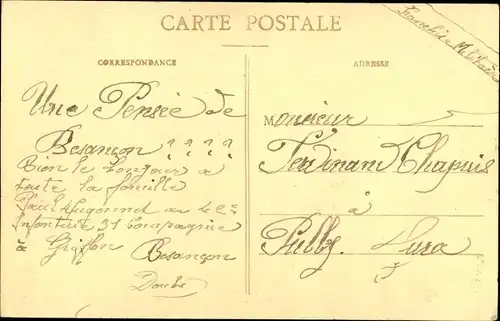 CARTE POSTALE
Franchise Militaire
CORRESPONDANCE
ADRESSE
Une Pensée de
Besançon ? ? ? ?
Bion le bonjour a
toute la famille
Paul Hugonnet au 60e
Infanterie 31 Compagnie
à Griffon
Besançon
Doubs
Monsieur
Ferdinand Chapuis
à
Jura